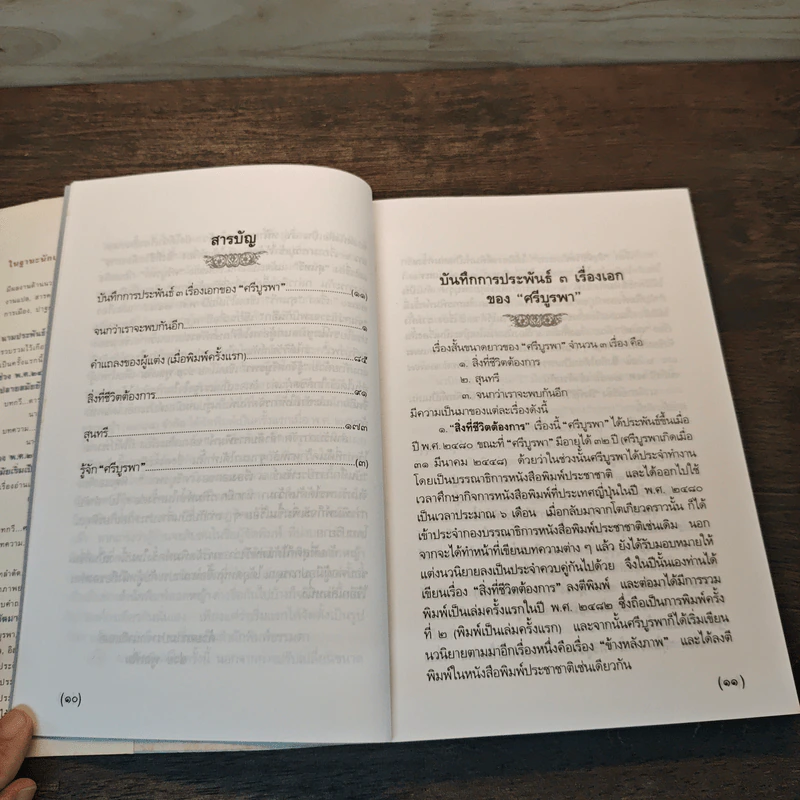 สารบัญ
บันทึกการประพันธ์ ๓ เรื่องเอกของ "ศรีบูรพา"....................(๑๑)
จนกว่าเราจะพบกันอีก....................๑
คำแถลงของผู้แต่ง (เมื่อพิมพ์ครั้งแรก)....................๘๕
สิ่งที่ชีวิตต้องการ....................๙๑
สุนทรี....................๑๗๓
รู้จัก "ศรีบูรพา"....................(๓)
(๑๐)
บันทึกการประพันธ์ ๓ เรื่องเอก
ของ "ศรีบูรพา"
เรื่องสั้นขนาดยาวของ "ศรีบูรพา" จำนวน ๓ เรื่อง คือ
๑. สิ่งที่ชีวิตต้องการ
๒. สุนทรี
๓. จนกว่าเราจะพบกันอีก
มีความเป็นมาของแต่ละเรื่องดังนี้
๑. "สิ่งที่ชีวิตต้องการ" เรื่องนี้ "ศรีบูรพา" ได้ประพันธ์ขึ้นเมื่อ
ปี พ.ศ. ๒๔๘๐ ขณะที่ "ศรีบูรพา" มีอายุได้ ๓๒ ปี (ศรีบูรพาเกิดเมื่อ
๓๑ มีนาคม ๒๔๔๘) ด้วยว่าในช่วงนั้นศรีบูรพาได้ประจำทำงาน
โดยเป็นบรรณาธิการหนังสือพิมพ์ประชาชาติ และได้ออกไปใช้
เวลาศึกษากิจการหนังสือพิมพ์ที่ประเทศญี่ปุ่นในปี พ.ศ. ๒๔๘๐
เป็นเวลาประมาณ ๖ เดือน เมื่อกลับมาจากโตเกียวคราวนั้น ก็ได้
เข้าประจำกองบรรณาธิการหนังสือพิมพ์ประชาชาติเช่นเดิม นอก
จากจะได้ทำหน้าที่เขียนบทความต่าง ๆ แล้ว ยังได้รับมอบหมายให้
แต่งนวนิยายลงเป็นประจำควบคู่กันไปด้วย จึงในปีนั้นเองท่านได้
เขียนเรื่อง "สิ่งที่ชีวิตต้องการ" ลงตีพิมพ์ และต่อมาได้มีการรวม
พิมพ์เป็นเล่มครั้งแรกในปี พ.ศ. ๒๔๘๒ ซึ่งถือเป็นการพิมพ์ครั้ง
ที่ ๒ (พิมพ์เป็นเล่มครั้งแรก) และจากนั้นศรีบูรพาก็ได้เริ่มเขียน
นวนิยายตามมาอีกเรื่องหนึ่งคือเรื่อง "ข้างหลังภาพ" และได้ลงตี
พิมพ์ในหนังสือพิมพ์ประชาชาติเช่นเดียวกัน
(๑๑)